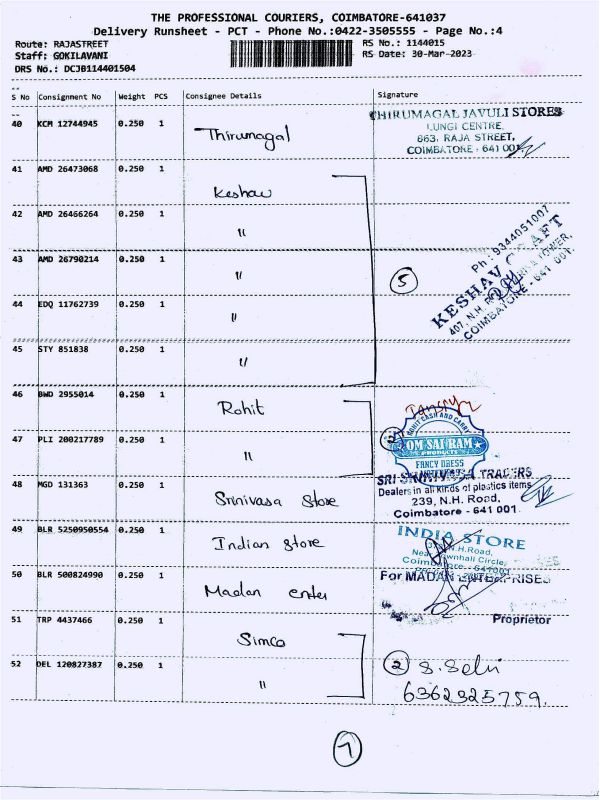 THE PROFESSIONAL COURIERS, COIMBATORE-641037
Delivery Runsheet - PCT - Phone No.:0422-3505555 - Page No.:4
Route: RAJASTREET RS No.: 1144015
Staff: GOKILAVANI RS Date: 30-Mar-2023
DRS No.: DCJB114401504
S No Consignment No Weight PCS Consignee Details Signature
40 KCM 12744945 0.250 1 Thirumagal
THIRUMAGAL JAVULI STORES
LUNGI CENTRE
663, RAJA STREET,
COIMBATORE - 641 001
41 AMD 26473068 0.250 1 Keshav
42 AMD 26466264 0.250 1 "
43 AMD 26790214 0.250 1 "
44 EDQ 11762739 0.250 1 "
45 STY 851838 0.250 1 "
5
Ph : 9344051007
KESHAV CRAFT
407, N.H. TOWER,
COIMBATORE - 641 001.
46 BWD 2955014 0.250 1 Rohit
47 PLI 200217789 0.250 1 "
2
ROHIT CASH AND CARRY
OM SAI RAM
PRODUCTS
FANCY DRESS
48 MGD 131363 0.250 1 Srinivasa Store
SRI SRINIVASA TRADERS
Dealers in all kinds of plastics items
239, N.H. Road,
Coimbatore - 641 001
49 BLR 5250950554 0.250 1 Indian Store
INDIA STORE
N.H.Road,
Near Townhall Circle,
Coimbatore - 641001
50 BLR 500824990 0.250 1 Madan enter
For MADAN ENTERPRISES
Proprietor
51 TRP 4437466 0.250 1 Simco
52 DEL 120827387 0.250 1 "
2 S. Selvi
6362325759.
7